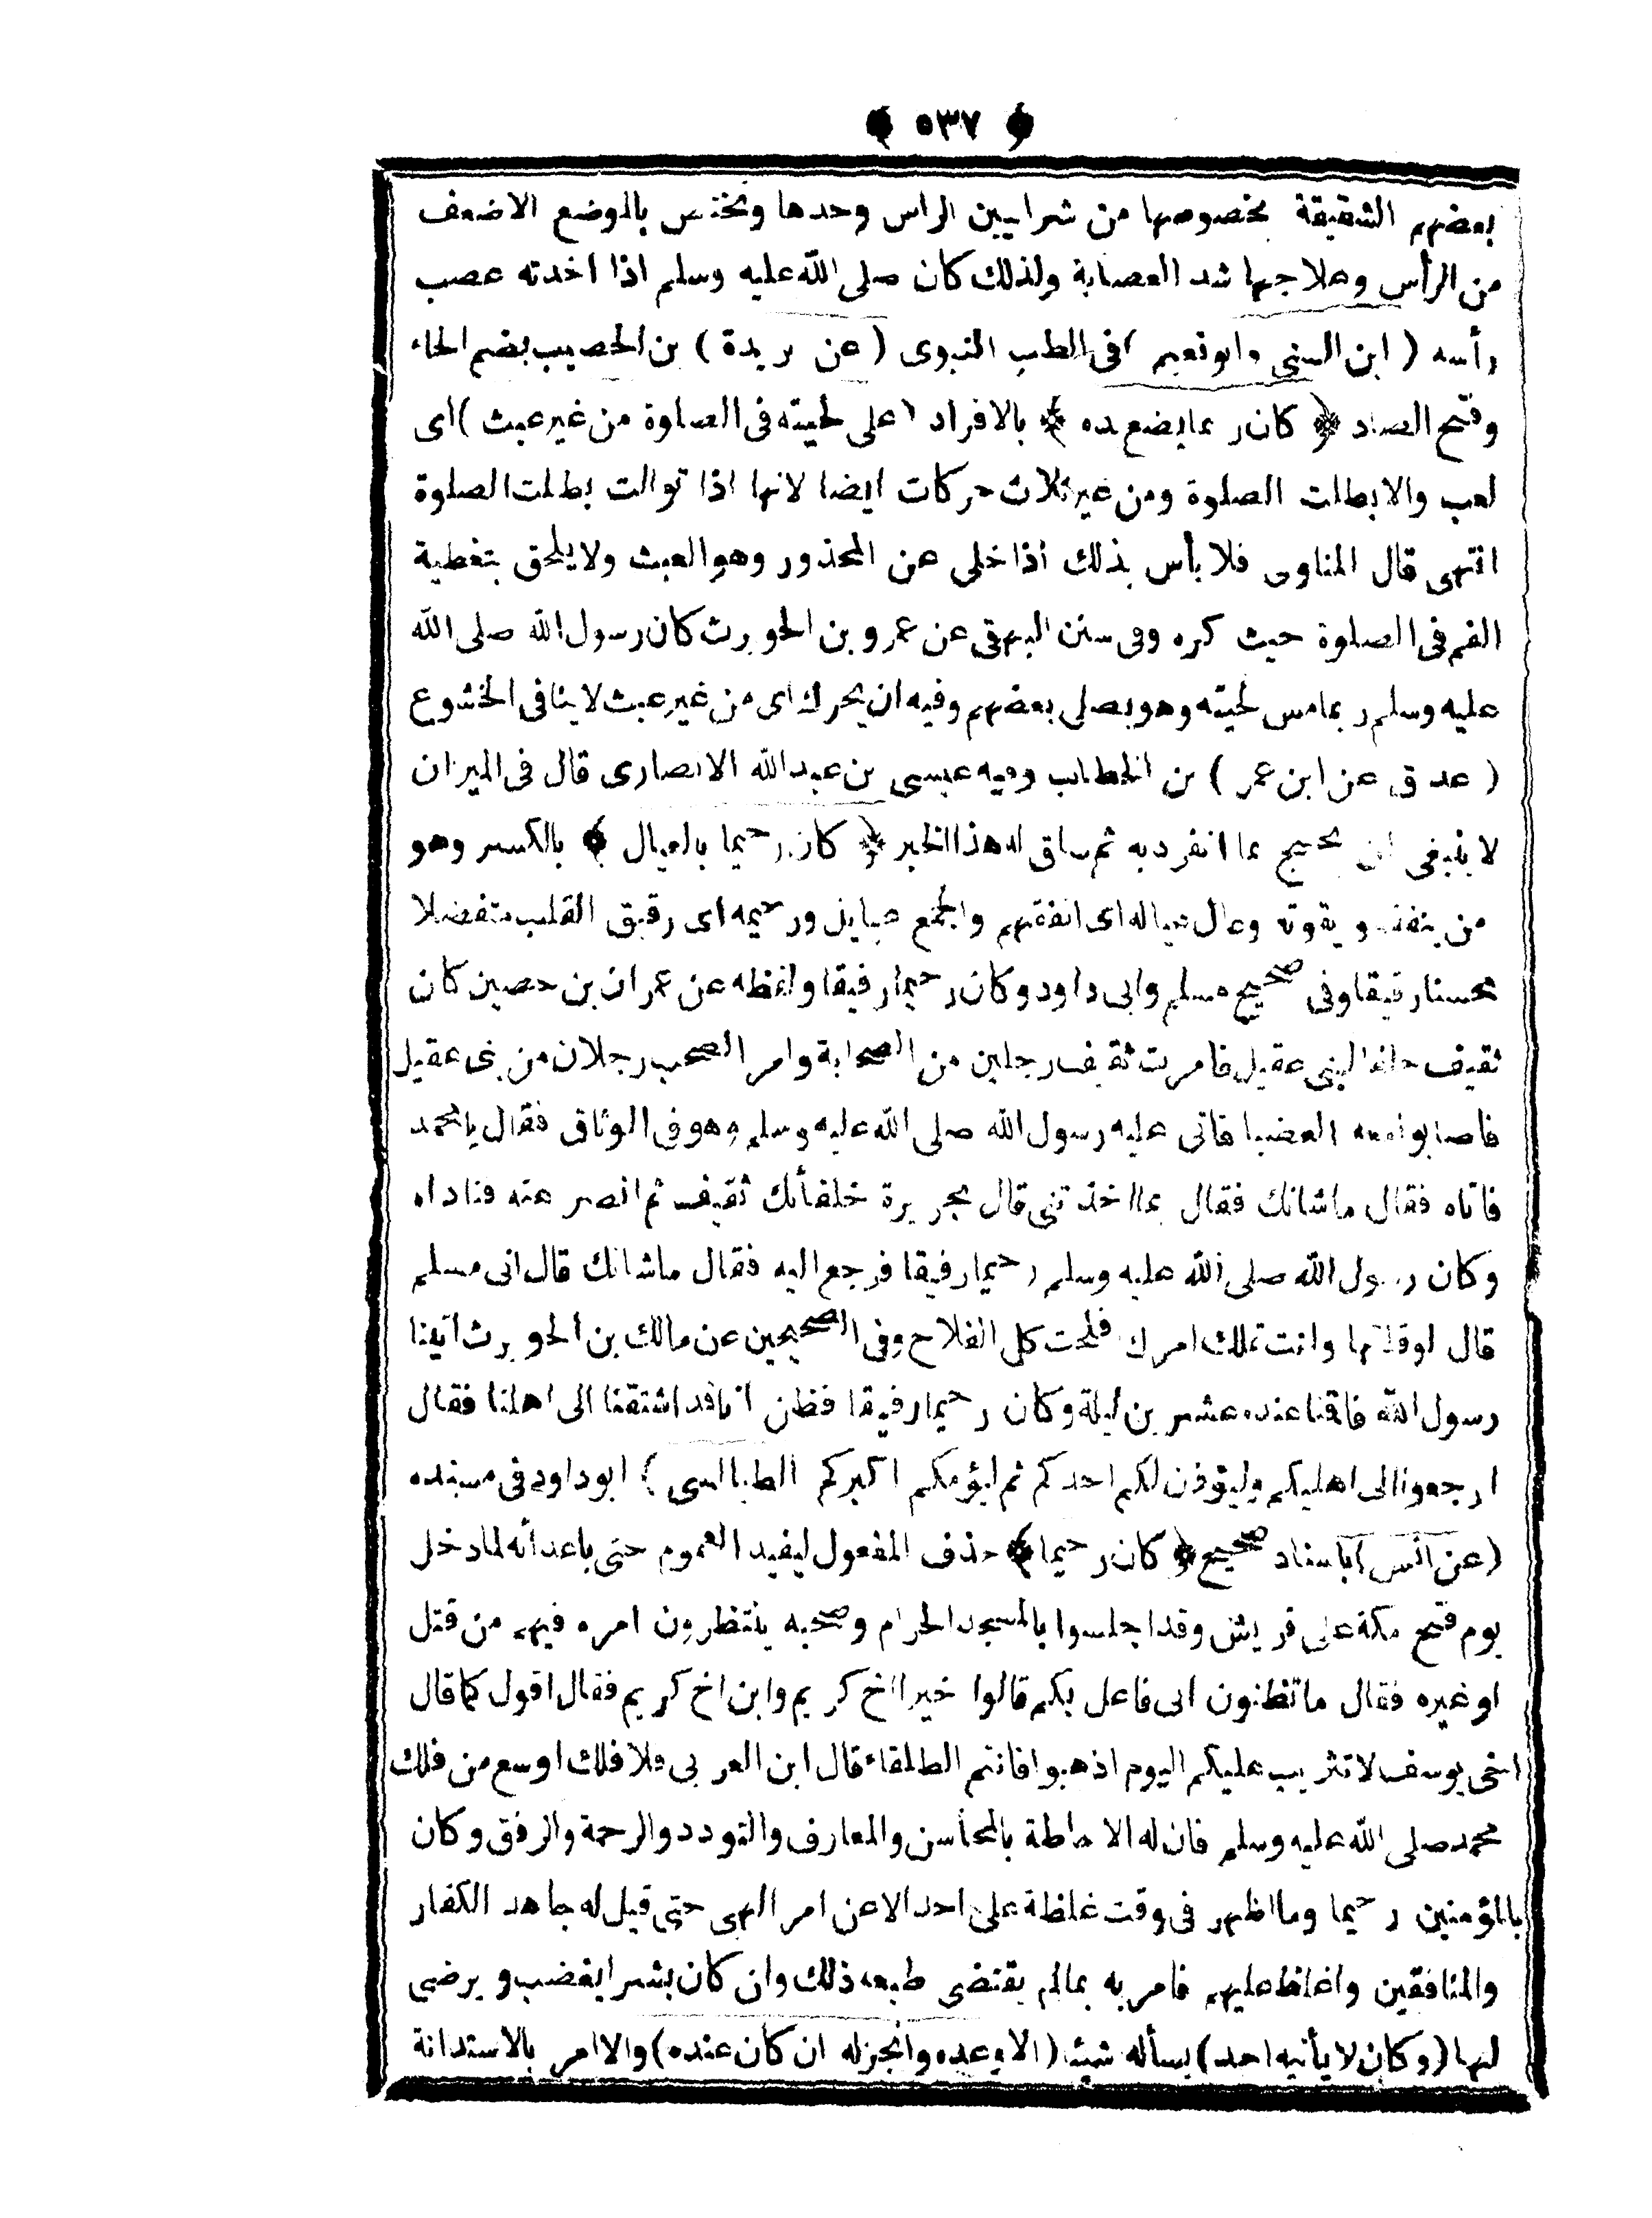 ﴿ ٥٣٧ ﴾
بعضهم الشقيقة بخصوصها من شرايين الراس وحدها وتختص بالموضع الاضعف
من الرأس وعلاجها شد العصابة ولذلك كان صلى الله عليه وسلم اذا اخذته عصب
رأسه ( ابن السنى وابو نعيم ) فى الطب النبوى ( عن بريدة ) بن الحصيب بضم الحاء
وفتح الصاد ﴿ كان ربما يضع يده ﴾ بالافراد ( على لحيته فى الصلوة من غير عبث ) اى
لعب والا بطلت الصلوة ومن غير ثلاث حركات ايضا لانها اذا توالت بطلت الصلوة
انتهى قال المناوى فلا بأس بذلك اذا خلى عن المحذور وهو العبث ولا يلحق بتغطية
الفم فى الصلوة حيث كره وفى سنن البيهقى عن عمرو بن الحويرث كان رسول الله صلى الله
عليه وسلم ربما مس لحيته وهو يصلى بعضهم وفيه ان يحرك اى من غير عبث لاينافى الخشوع
( عد ق عن ابن عمر ) بن الخطاب وفيه عيسى بن عبد الله الانصارى قال فى الميزان
لا ينبغى ان يحتج بما انفرد به ثم ساق له هذا الخبر ﴿ كان رحيما بالعيال ﴾ بالكسر وهو
من ينفقه ويقوته وعال عياله اى انفقهم والجمع عيايل ورحيمه اى رقيق القلب متفضلا
محسنا رقيقا وفى صحيح مسلم وابى داود وكان رحيما رفيقا ولفظه عن عمران بن حصين كان
ثقيف حلفا لبنى عقيل فامرت ثقيف رجلين من الصحابة وامر الصحب رجلان من بنى عقيل
فاصابوا معه العضبا فاتى عليه رسول الله صلى الله عليه وسلم وهو فى الوثاق فقال يا محمد
فاتاه فقال ماشانك فقال بما اخذتنى قال بجريرة خلفأنك ثقيف ثم انصر عنه فناداه
وكان رسول الله صلى الله عليه وسلم رحيما رفيقا فرجع اليه فقال ماشانك قال انى مسلم
قال لو قلتها وانت تملك امرك فلحت كل الفلاح وفى الصحيحين عن مالك بن الحويرث اتينا
رسول الله فاقنا عنده عشرين ليلة وكان رحيما رفيقا فظن انا قد اشتقنا الى اهلنا فقال
ارجعوا الى اهليكم وليؤذن لكم احدكم ثم ليؤمكم اكبركم الطيالسى ) ابو داود فى مسنده
( عن انس ) باسناد صحيح ﴿ كان رحيما ﴾ حذف المفعول ليفيد العموم حتى باعدأنه لما دخل
يوم فتح مكة على قريش وقد اجلسوا بالمسجد الحرام وصحبه ينتظرون امره فيهم من قتل
او غيره فقال ماتظنون انى فاعل بكم قالوا خيرا اخ كريم وابن اخ كريم فقال اقول كما قال
اخى يوسف لا تثريب عليكم اليوم اذهبوا فانتم الطلقاء قال ابن العربى فلا فلك اوسع من فلك
محمد صلى الله عليه وسلم فان له الاحاطة بالمحاسن والمعارف والتودد والرحمة والرفق وكان
بالمؤمنين رحيما وما اظهر فى وقت غلظة على احد الا عن امر الهى حتى قيل له جاهد الكفار
والمنافقين واغلظ عليهم فامر به بمالم يقتضى طبعه ذلك وان كان بشرا يغضب ويرضى
لها ( وكان لا يأتيه احد ) يسأله شيئا ( الا وعده وانجزله ان كان عنده ) والا امر بالاستدانة